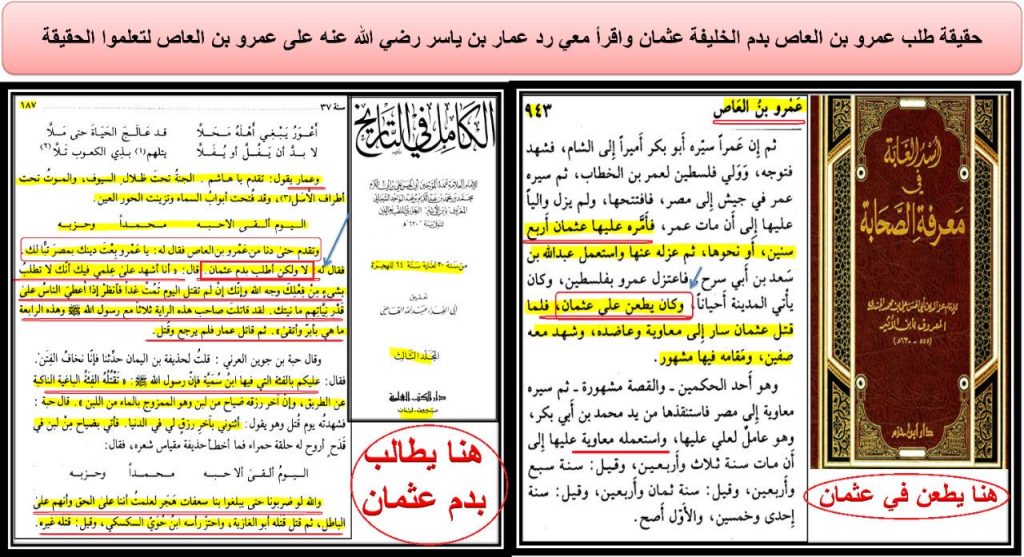 حقيقة طلب عمرو بن العاص بدم الخليفة عثمان واقرأ معي رد عمار بن ياسر رضي الله عنه على عمرو بن العاص لتعلموا الحقيقة
عَمْرو بنُ العَاص
٩٤٣
ثم إن عَمراً سيّره أبو بكر أميراً إلى الشام، فشهد
فتوحه، وَوَلي فلسطين لعمر بن الخطاب، ثم سيره
عمر في جيش إلى مصر، فافتتحها، ولم يزل والياً
عليها إلى أن مات عمر، فأمَّره عليها عثمان أربع
سنين، أو نحوها، ثم عزله عنها واستعمل عبدالله بن
سَعد بن أبي سرح. فاعتزل عمرو بفلسطين، وكان
يأتي المدينة أحياناً، وكان يطعن على عثمان، فلما
قتل عثمان سار إلى معاوية وعاضده، وشهد معه
صفين، ومَقامه فيها مشهور.
وهو أحد الحكمين ـ والقصة مشهورة ـ ثم سيره
معاوية إلى مصر فاستنقذها من يد محمد بن أبي بكر،
وهو عاملٌ لعلي عليها، واستعمله معاوية عليها إلى
أن مات سنة ثلاث وأربعين، وقيل: سنة سبع
وأربعين، وقيل: سنة ثمان وأربعين، وقيل: سنة
إحدى وخمسين، والأوّل أصح.
أسد الغابة
في
معرفة الصحابة
دار ابن حزم
هنا يطعن في عثمان
سنة ٣٧
١٨٧
أعْوَرُ يَبْغي أهْلَهُ مَحَلّا قد عالَجَ الحَيَاةَ حتى مَلّا
لا بدّ أن يَفُلّ أو يُفَلّا يتلهم(١) بذي الكعوب تَلّا(٢)
وعمار يقول: تقدم يا هاشم. الجنةُ تحت ظلال السيوف، والموت تحت
أطراف الأسَل(٣)، وقد فُتحت أبوابُ السماء وتزينت الحور العين.
اليوم ألقى الأحبه محمداً وحزبه
وتقدم حتى دنا من عَمْرو بن العاص فقال له: يا عَمْرو بِعْتَ دينك بمصرَ تبّاً لك.
فقال له: لا ولكن أطلب بدم عثمان. قال: «أنا أشهد على علمي فيك أنّك لا تطلب
بشيءٍ مِنْ فِعْلِكَ وجه الله وإنك إن لم تقتل اليوم تَمُتْ غداً فانظر إذا أُعطيَ الناسُ على
قَدْر نيَّاتِهم ما نيتك. لقد قاتلت صاحب هذه الراية ثلاثاً مع رسول الله ﷺ وهذه الرابعة
ما هي بأبرّ وأتقى». ثم قاتل عمار فلم يرجع وقُتل.
وقال حبة بن جوين العرني: قلتُ لحذيفة بن اليمان حدِّثنا فإنّا نخافُ الفِتَن.
فقال: عليكم بالفئة التي فيها ابنُ سُميّة فإنَّ رسول الله ﷺ: «تَقْتُلُهُ الفِئَةُ الباغية الناكبة
عن الطريق، وإنّ آخر رزقه ضياح من لبن وهو الممزوج بالماء من اللبن». قال حبة:
فشهدتُه يوم قُتل وهو يقول: ائتوني بآخر رزق لي في الدنيا. فأُتي بضياح مِنْ لبن في
قَدَح أروح له حلقة حمراء فما أخطأ حذيفة مقياس شعره، فقال:
اليومُ ألقى الأحبه محمداً وحزبه
والله لو ضربونا حتى يبلغوا بنا سعفات هَجَر لعلمتُ أننا على الحق وأنهم على
الباطل، ثم قتل قتله أبو الغازية، واحتزّ رأسه ابنُ حُوَيّ السكسكي، وقيل: قتله غيره.
الكامل في التاريخ
من سنة ٣٠ لغاية سنة ٦٤ للهجرة
تحقيق
أبي الفداء عبدالله القاضي
المجلد الثالث
دار الكتب العلمية
بيروت - لبنان
هنا يطالب
بدم عثمان